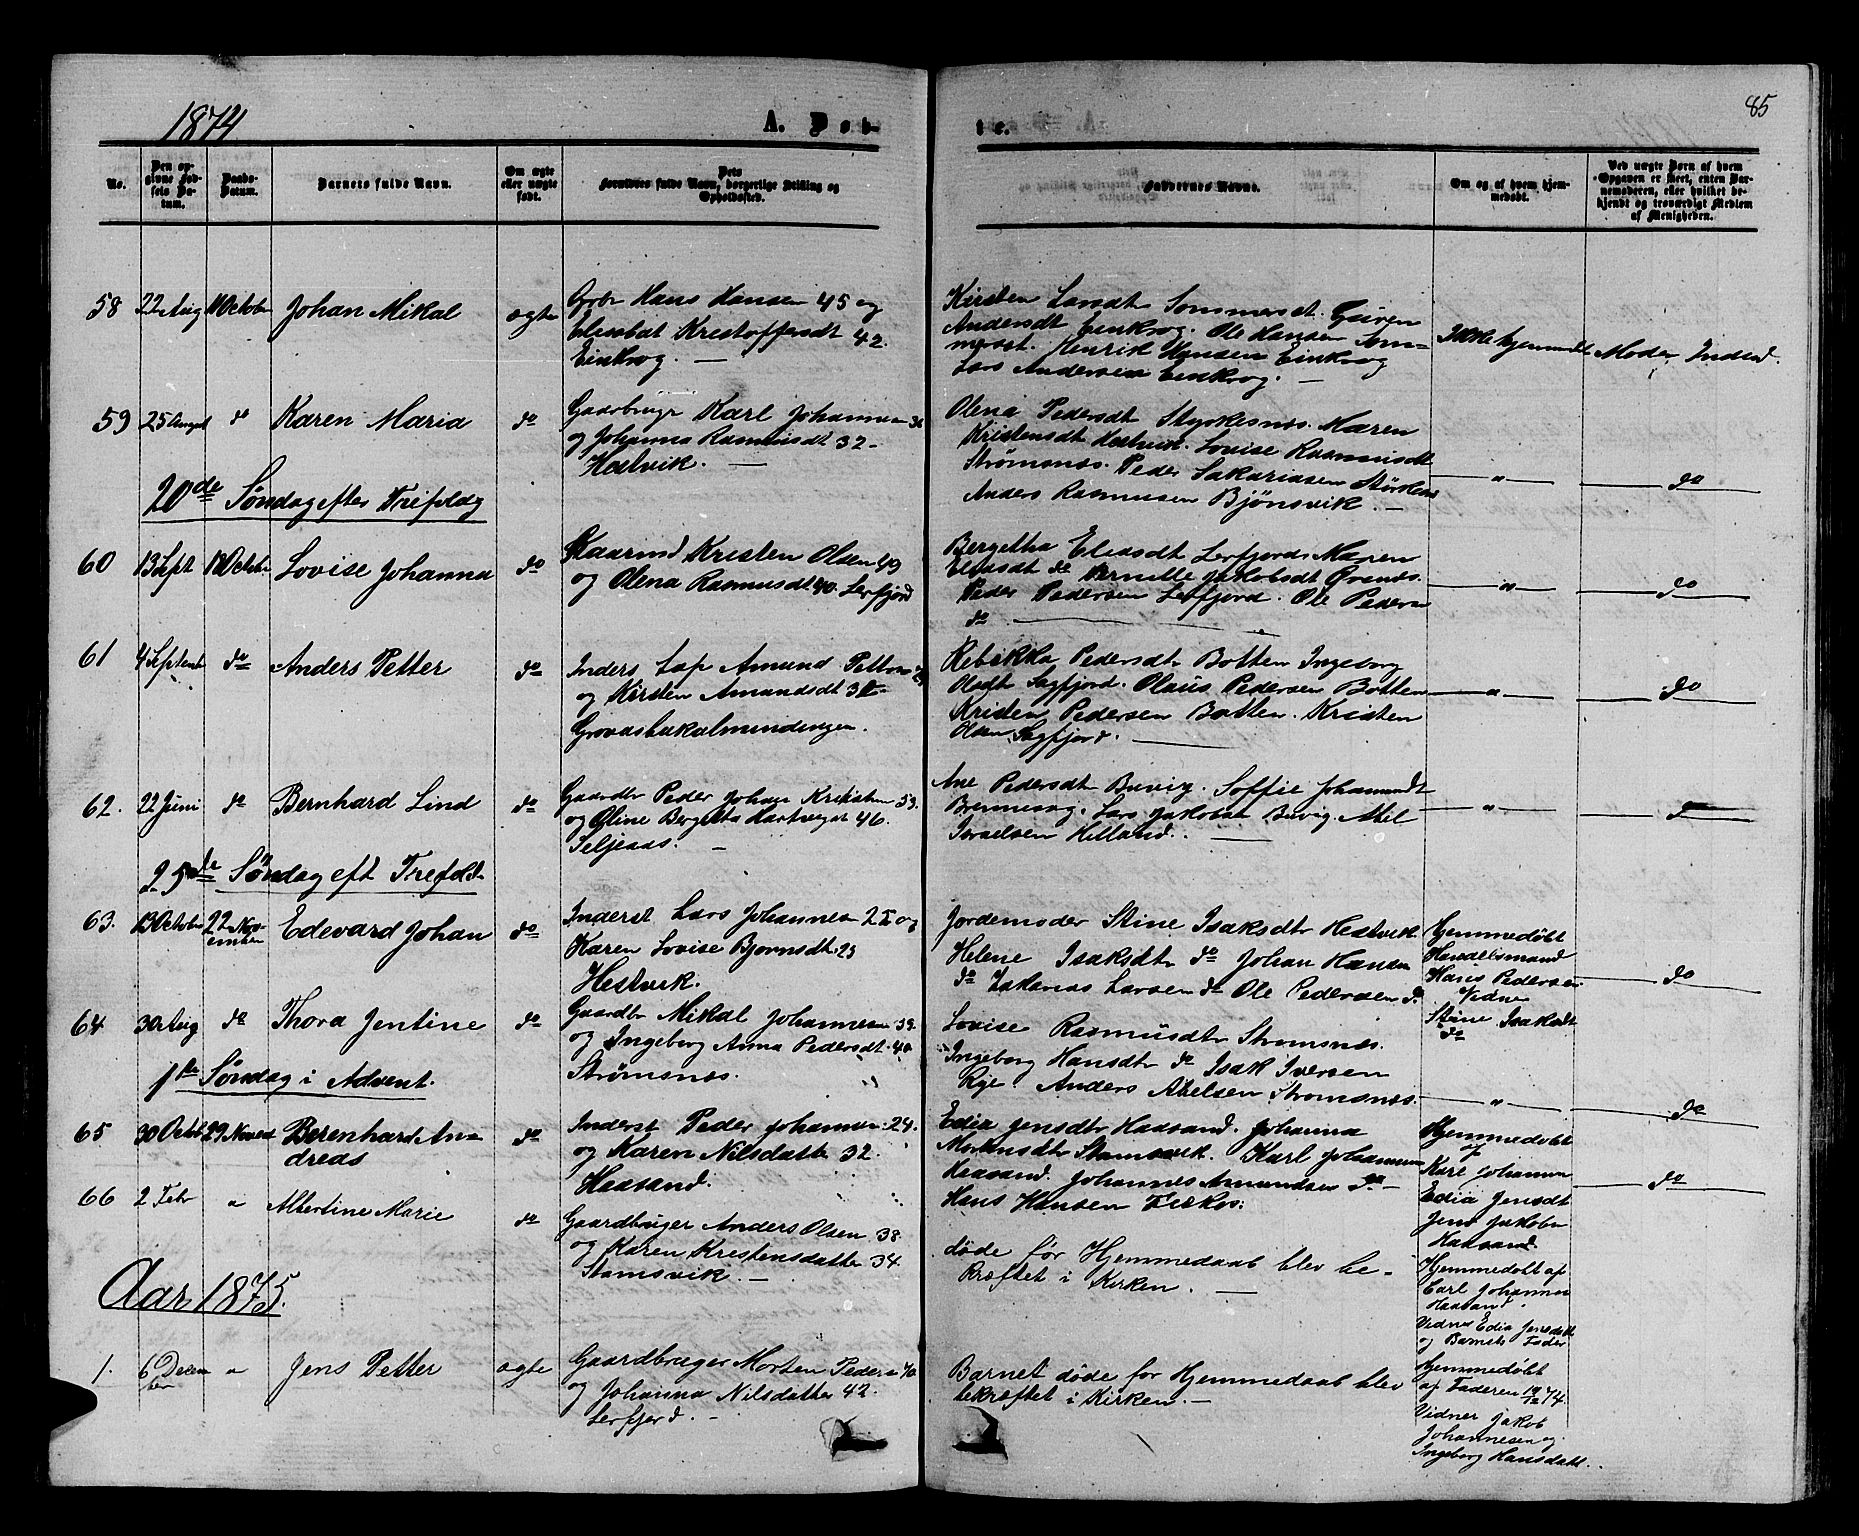 1874
A. Døb-
te.
85
No.
Den opgivne Fødsels Datum.
Daabs-Datum.
Barnets fulde Navn.
Om ægte eller uægte født.
Dets Forældres fulde Navn, borgerlige Stilling og Opholdssted.
Faddernes Navne.
Om og af hvem hjemmedøbt.
Ved uægte Børn af hvem Opgaven er skeet, enten Barnemoderen, eller hvilket bekjendt og troværdigt Medlem af Menigheden.
58 22 Aug 11 Octobr Johan Mikal ægte
Grbr Hans Hansen 45 og
Elisabat Krestoffersdt 42
Einkrog. —
Kirsten Larsdt Sommerset. Guren
Andersdt Einkrog. Ole Hansen Som-
merset. Henrik Hansen Einkrog
Lars Andersen Einkrog. —
Ikke hjemmedt Moder Indsd.
59 25 August do Karen Maria do
Gaardbrugr Karl Johannesen 36
og Johanna Rasmusdt 32 -
Hestvik. —
Olena Pedersdt Styrkesnes. Maren
Kristensdt Hestvik. Lovise Rasmusdt
Strømsnes. Peder Sakariasen Störkesn
Anders Rasmusen Bjönsvik. —
" do
20de Søndag efter Trefoldg
60 13 Sept 18 Octobr Lovise Johanna do
Gaarmd Kristen Olsen 49
og Olena Rasmusdt 40. Lerfjord
Bergetha Eliasdt Lerfjord. Maren
Eliasdt do Pernille Jakobsdt Ørsnes.
Peder Pedersen Lerfjord. Ole Pedersn
do
" do
61 4 Septembr do Anders Petter do
Inders Lap Amund Petters
og Kirsten Amundsdt
Grovasbakalmindingen.
Rebekka Pedersdt Botten Ingeborg
Olsdt Sagfjord. Olaus Pedersen Botten
Kristen Pedersen Botten. Kristen
Olsen Sagfjord.
" do
62. 22 Juni do Bernhard Lind do
Gaardbr Peder Johan Kristian 53.
og Oline Bergitta Hartvigst 46.
Seljeaas. —
Ane Pedersdt Buvig. Soffie Johannesdt
Brennesvig. Lars Jakobsen Buvig. Abel
Israelsen Helland.
" do
25de Søndag eft Trefoldt
63. 13 Octobr 22 November Edevard Johan do
Inderst Lars Johannesen og
Karen Lovise Bjornsdt 23
Hestvik.
Jordemoder Stine Isaksdtr Hestvik
Helene Isaksdtr do Johan Hansen
do Zakarias Larsen do Ole Pedersen do
Hjemmedöbt
Handelsmand
Hans Pedersen
Vidne
Stine Isaksdt
do
do
64 30 Aug do Thora Jentine do
Gaardbr Mikal Johannesen 39.
og Ingeborg Anna Pedersdt 40
Strømsnes.
Lovise Rasmusdtr Stromsnes.
Ingeborg Hansdtr do Isak Iversen
Rye. Anders Abelsen Stromsnes.
" do
1ste Søndag i Advent.
65 30 Octob 29 Novem Berenhard An-
dreas do
Inderst Peder Johannsn 24.
og Karen Nilsdatter 32.
Haasand.
Edia Jensdtr Haasand. Johanna
Mortensdtr Stamsvik. Karl Johannesen
Haasand. Johannes Amundsen do -
Hans Hansen Feskos.
Hjemmedøbt
af
Karl Johannesen
Edia Jensdt
Jens Jakobsen
Haasand
do
66 2 Febr " Albertine Marie do
Gaardbruger Anders Olsen 38
og Karen Krestensdatter 34.
Stamsvik. —
døde før Hjemmedaab blev be-
kræftet i Kirken. —
Hjemmedøbt af
Carl Johannes
Haasand.
Vidner Edia Jensdatt
og Barnets Fader
Aar 1875.
1. 6 Decem
ber " Jens Petter ægte
Gaardbruger Morten Pedersen 40
og Johanna Nilsdatter 42.
Lerfjord. -
Barnet døde før Hjemmedaab blev
bekræftet i Kirken. —
Hjemmedøbt
af Faderen 19/12 74.
Vidner Jakob
Johannesen og
Ingeborg Hansdatt.